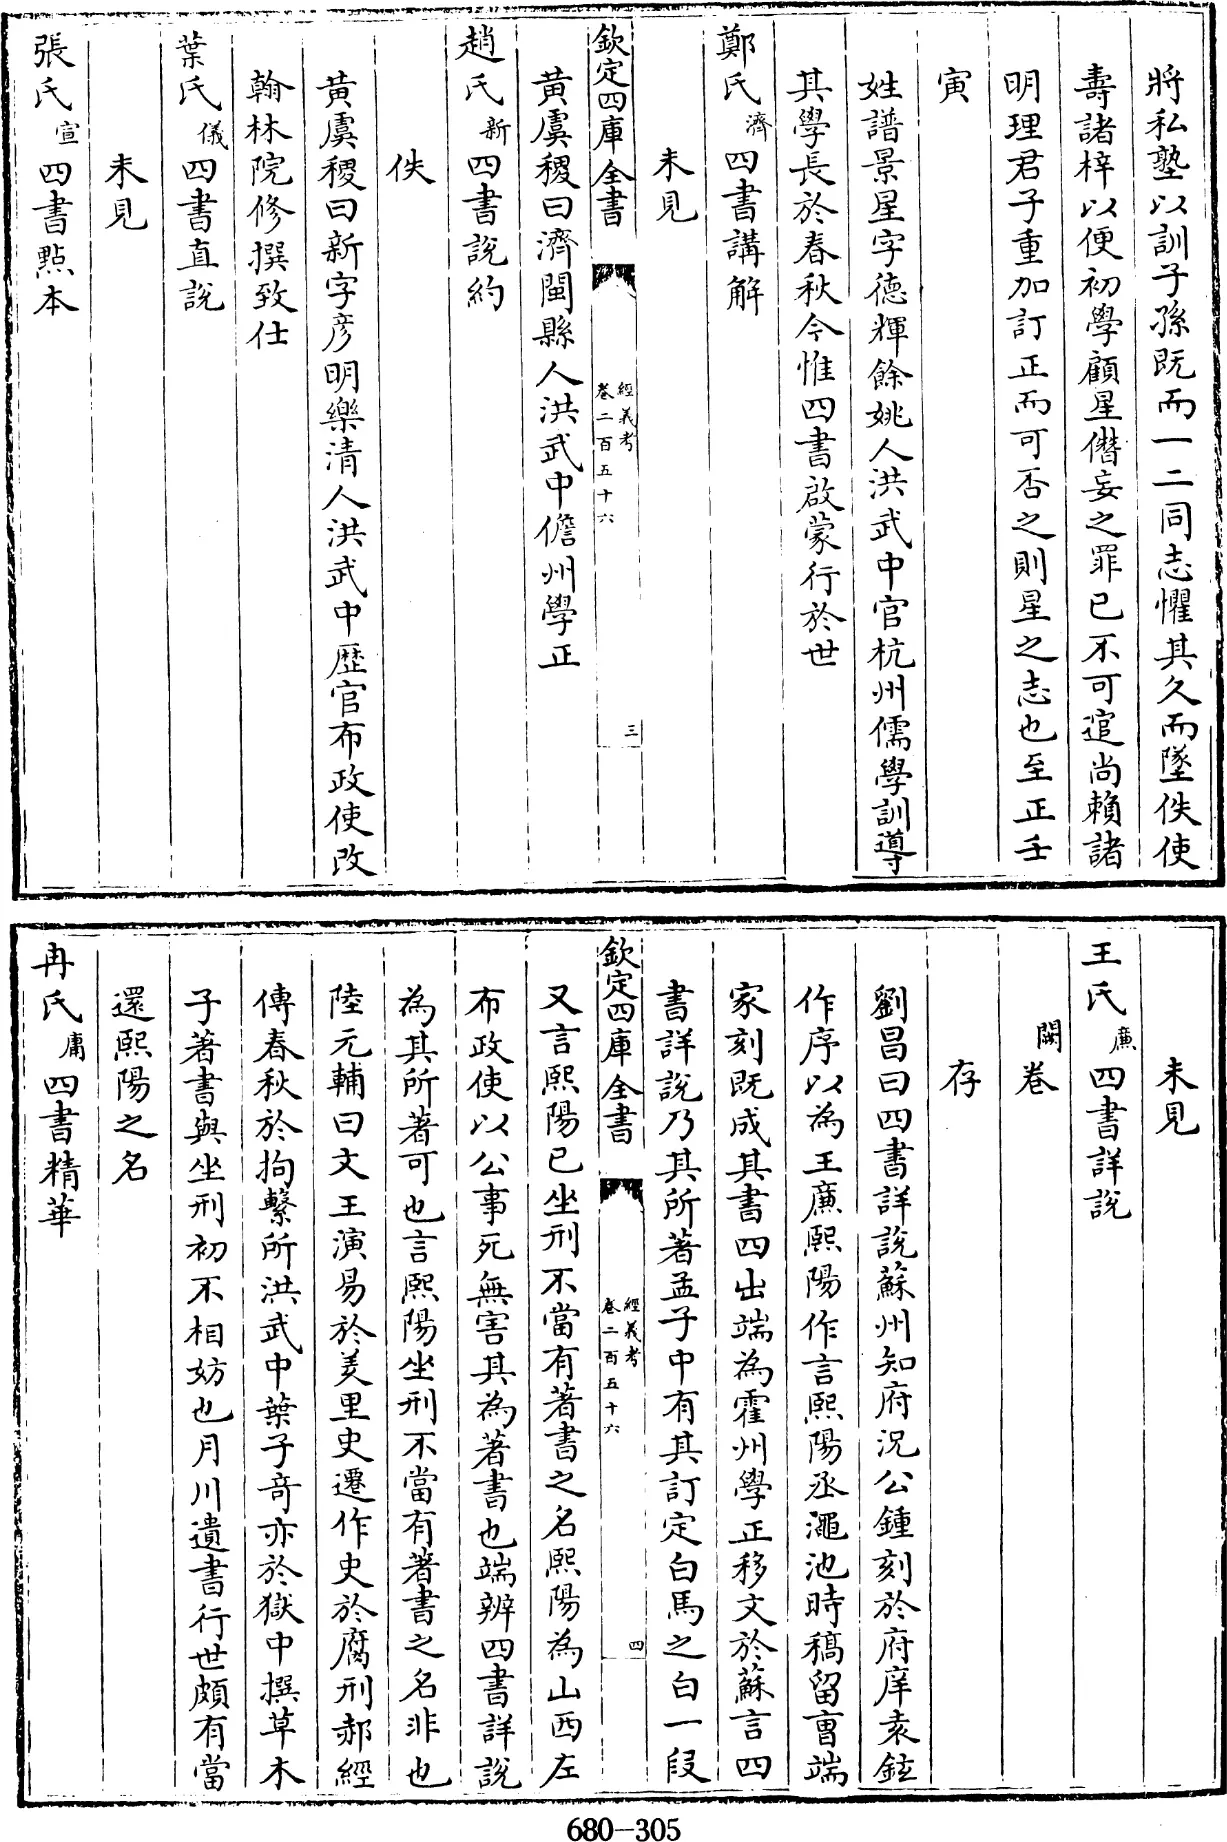 將私塾以訓子孫既而一二同志懼其久而墜佚使
壽諸梓以便初學顧星僭妄之罪已不可逭尚賴諸
明理君子重加訂正而可否之則星之志也至正壬
寅
姓譜景星字德輝餘姚人洪武中官杭州儒學訓導
其學長於春秋今惟四書啟蒙行於世
鄭氏濟四書講解
未見
欽定四庫全書
經義考
卷二百五十六
三
黃虞稷曰濟閩縣人洪武中儋州學正
趙氏新四書說約
佚
黃虞稷曰新字彦明樂清人洪武中歷官布政使改
翰林院修撰致仕
葉氏儀四書直說
未見
張氏宣四書點本
未見
王氏廉四書詳說
闕卷
存
劉昌曰四書詳說蘇州知府况公鍾刻於府庠袁鉉
作序以為王廉熙陽作言熙陽丞澠池時稿留曺端
家刻既成其書四出端為霍州學正移文於蘇言四
書詳說乃其所著孟子中有其訂定白馬之白一段
欽定四庫全書
經義考
卷二百五十六
四
又言熙陽已坐刑不當有著書之名熙陽為山西左
布政使以公事死無害其為著書也端辨四書詳說
為其所著可也言熙陽坐刑不當有著書之名非也
陸元輔曰文王演易於羑里史遷作史於腐刑郝經
傳春秋於拘繫所洪武中葉子奇亦於獄中撰草木
子著書與坐刑初不相妨也月川遺書行世頗有當
還熙陽之名
冉氏庸四書精華
680-305